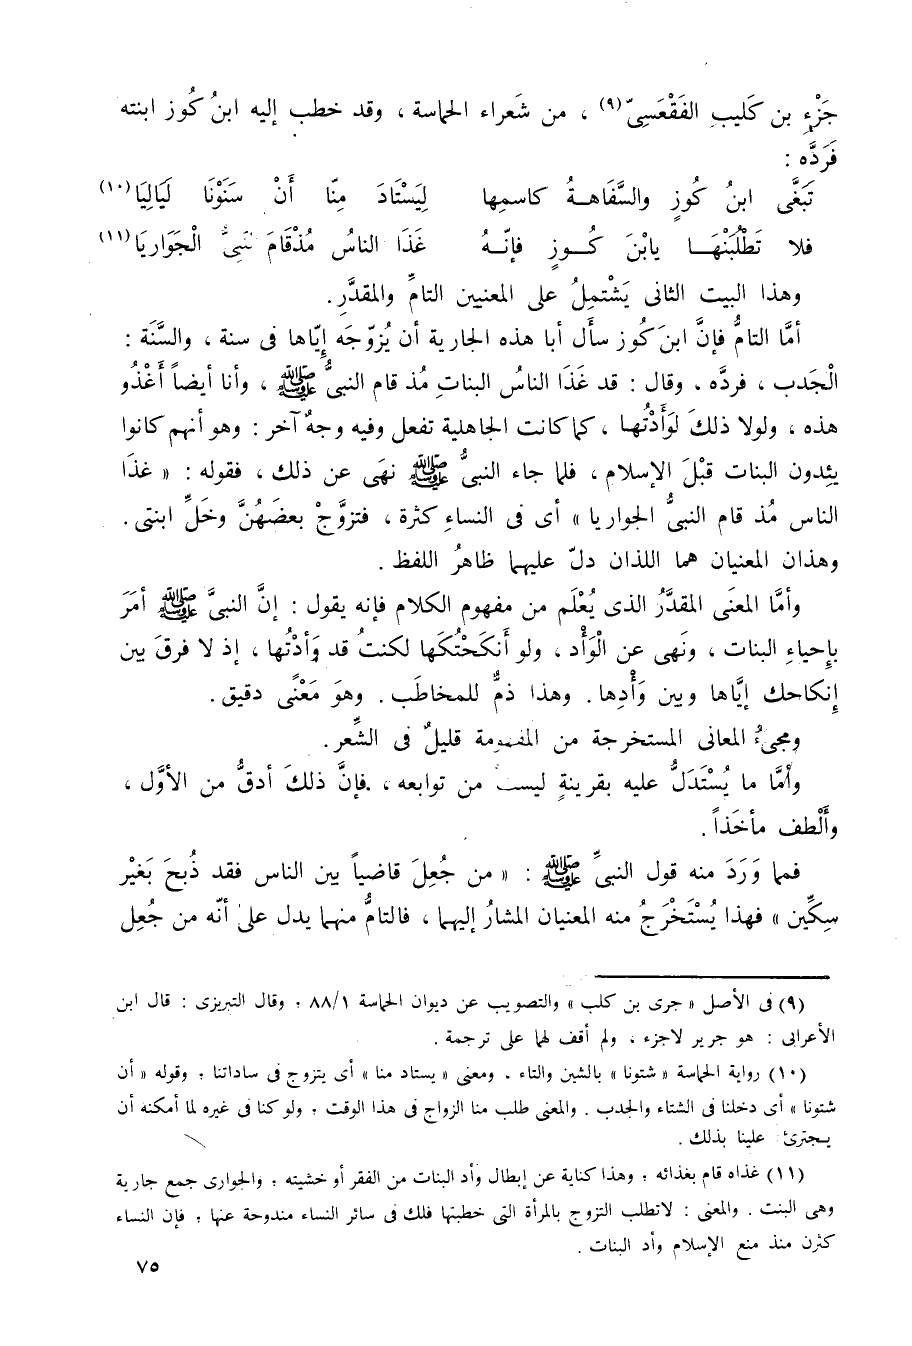 جَزْءِ بن كَليبِ الفَقْعَسِىّ(٩) ، من شَعراء الحماسة ، وقد خطب إليه ابنُ كُوز ابنته
فَرَدَّه :
تَبَغَّى ابنُ كُوزٍ والسَّفَاهـةُ كاسمِها لِيَسْتَادَ مِنّا أَنْ سَنَوْنَا لَيَالِيَا(١٠)
فلا تَطْلُبَنْهَـا يابْنَ كُـوزٍ فإنّـهُ غَذَا الناسُ مُذْقَامَ نَبىُّ الْجَوَاريَا(١١)
وهذا البيت الثانى يَشْتمِلُ على المعنيين التامِّ والمقدَّرِ.
أمَّا التامُّ فإنَّ ابنَ كُوز سأَل أبا هذه الجارية أن يُزوّجَه إيّاها فى سنة ، والسَّنَة :
الْجَدب ، فردَّه . وقال : قد غَذَا الناسُ البناتِ مُذ قام النبىُّ ﷺ ، وأنا أيضاً أَغْذُو
هذه ، ولولا ذلكَ لَوَأَدْتُها ، كما كانت الجاهلية تفعل وفيه وجهٌ آخر : وهو أنهم كانوا
يئِدون البنات قبْلَ الإسلام ، فلما جاء النبىُّ ﷺ نهَى عن ذلك ، فقوله : « غذَا
الناس مُذ قام النبىُّ الجواريا » أى فى النساءِ كثرة ، فتزوَّجْ بعضَهُنَّ وخَلِّ ابنتى .
وهذان المعنيان هما اللذان دلّ عليهما ظاهرُ اللفظ .
وأمَّا المعنَى المقدَّرُ الذى يُعْلَم من مفهوم الكلام فإنه يقول : إنَّ النبىَّ ﷺ أمَرَ
بإحياءِ البنات ، ونَهى عن الْوَأْد ، ولو أَنكَحْتُكَها لكنتُ قد وَأدْتُها ، إذ لا فرقَ بين
إِنكاحك إيَّاها وبين وَأْدِها . وهذا ذمٌّ للمخاطَب . وهوَ مَعْنًى دقيق .
ومجىءُ المعانى المستخرجة من المفهومة قليلٌ فى الشِّعر .
وأَمَّا ما يُسْتَدَلُّ عليه بقرينةٍ ليست من توابعه ، فإنَّ ذلكَ أدقُّ من الأوَّل ،
وأَلْطف مأخَذاً .
فمما وَرَدَ منه قول النبىِّ ﷺ : « من جُعِلَ قاضياً بين الناس فقد ذُبحَ بَغَيْر
سِكِّين » فهذا يُسْتَخْرَجُ منه المعنيان المشارُ إليهما ، فالتامُّ منهما يدل على أنّه من جُعِل
(٩) فى الأصل « جرى بن كلب » والتصويب عن ديوان الحماسة ٨٨/١ ؛ وقال التبريزى : قال ابن
الأعرابى : هو جرير لاجزء ، ولم أقف لها على ترجمة .
(١٠) رواية الحماسة « شتونا » بالشين والتاء . ومعنى « يستاد منا » أى يتزوج فى ساداتنا ؛ وقوله « أن
شتونا » أى دخلنا فى الشتاء والجدب . والمعنى طلب منا الزواج فى هذا الوقت ؛ ولو كنا فى غيره لما أمكنه أن
يجترئ علينا بذلك .
(١١) غذاه قام بغذائه ؛ وهذا كناية عن إبطال وأد البنات من الفقر أو خشيته ؛ والجوارى جمع جارية
وهى البنت . والمعنى : لاتطلب التزوج بالمرأة التى خطبتها فلك فى سائر النساء مندوحة عنها ؛ فإن النساء
كثرن منذ منع الإسلام وأد البنات .
٧٥